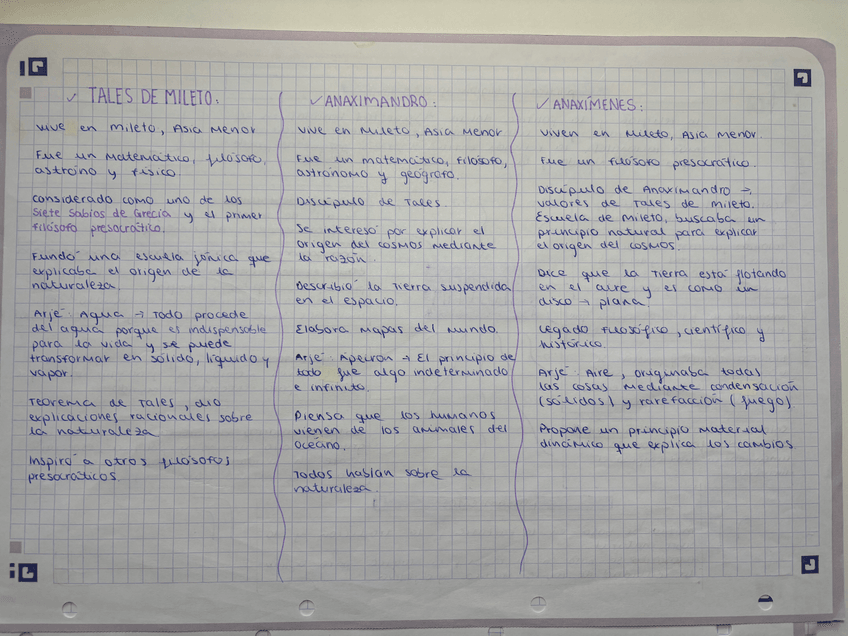 ✓ TALES DE MILETO:
vive en mileto, Asia Menor
Fue un matemático, filósofo,
astróno y físico.
considerado como uno de los
Siete Sabios de Grecia y el primer
filósofo presocrático.
Fundó una escuela jónica que
explicaba el origen de la
naturaleza.
Arjé: Agua → Todo procede
del agua porque es indispensable
para la vida y se puede
transformar en sólido, líquido y
vapor.
Teorema de Tales, dio
explicaciones racionales sobre
la naturaleza
Inspiró a otros filósofos
presocráticos.
✓ ANAXIMANDRO:
vive en Mileto, Asia Menor
Fue un matemático, filósofo,
astrónomo y geógrafo.
Discípulo de Tales.
Se interesó por explicar el
origen del cosmos mediante
la razón.
Describió la Tierra suspendida
en el espacio.
Elabora mapas del mundo.
Arjé: Ápeiron → El principio de
todo fue algo indeterminado
e infinito.
Piensa que los humanos
vienen de los animales del
océano.
Todos hablan sobre la
naturaleza.
✓ ANAXÍMENES:
viven en Mileto, Asia Menor.
Fue un filósofo presocrático.
Discípulo de Anaximandro →
valores de Tales de mileto.
Escuela de mileto, buscaba un
principio natural para explicar
el origen del cosmos.
Dice que la Tierra está flotando
en el aire y es como un
disco → plana.
Legado filosófico, científico y
histórico.
Arjé: Aire, originaba todas
las cosas mediante condensación
(sólidos) y rarefacción (fuego)
Propone un principio material
dinámico que explica los cambios